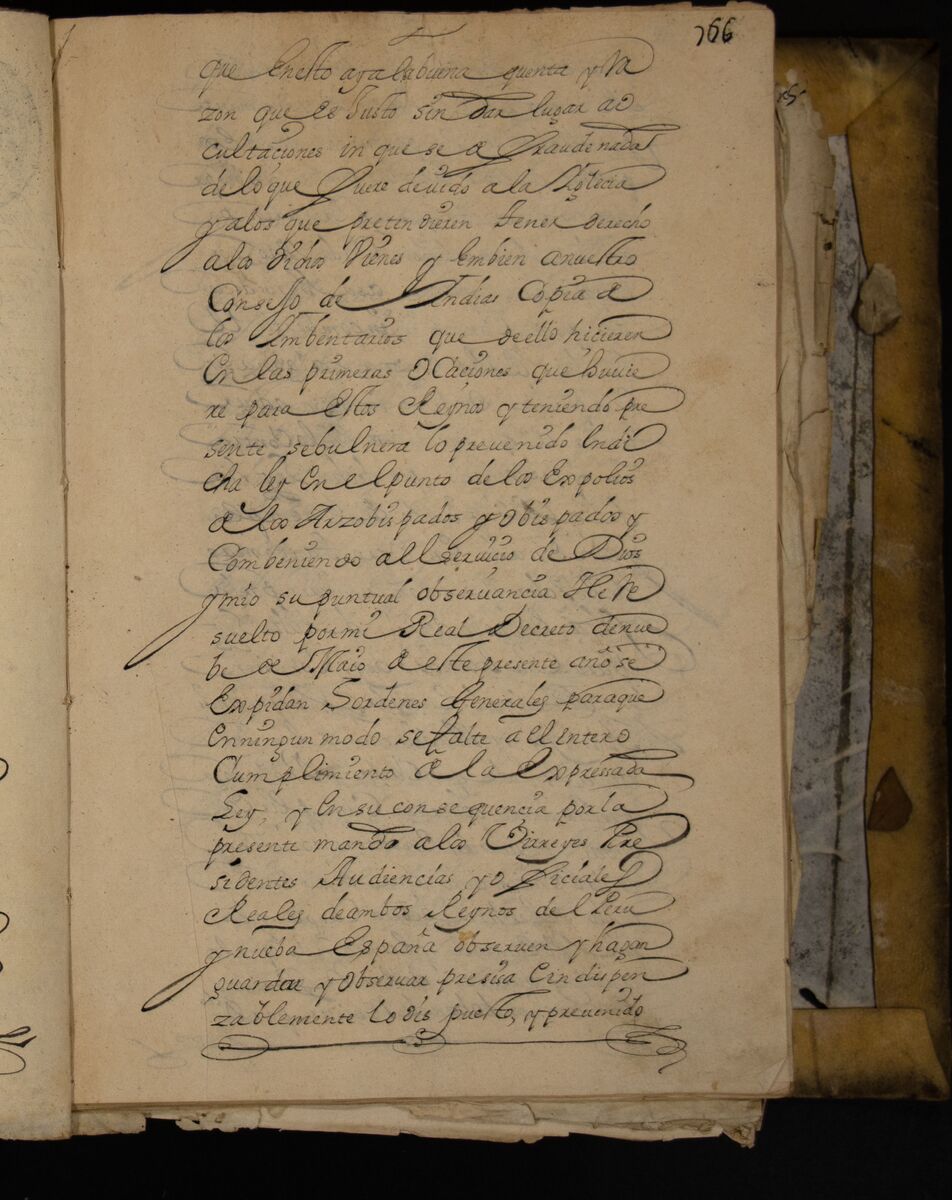 166
que en esto aya la buena quenta y Ra
zon que es Justo sin dar lugar a o
cultaciones in que se de fraude nada
de lo que fuere devido a la Yglecia
y a los que pretendieren tener derecho
a los dichos Vienes y embien a nuestro
Consejo de Yndias Copia de
los Imbentarios que de ello hicieren
en las primeras ocaciones que huvie
re para estos Reynos y teniendo pre
sente se bulnera lo prevenido en di
cha ley en el punto de los Expolios
de los Arzobispados y obispados y
Combeniendo al servicio de Dios
y mio su puntual observancia He Re
suelto por mi Real Decreto de nue
be de Maio de este presente año se
Expidan ordenes Generales para que
en ningun modo se falte a el entero
Cumplimiento de la expressada
Ley, y en su consequencia por la
presente mando a los Virreyes Pre
sidentes Audiencias y oficiales
Reales de ambos Reynos del Peru
y nueba España observen y hagan
guardar y observar presisa e indispen
zablemente lo dispuesto, y prevenido